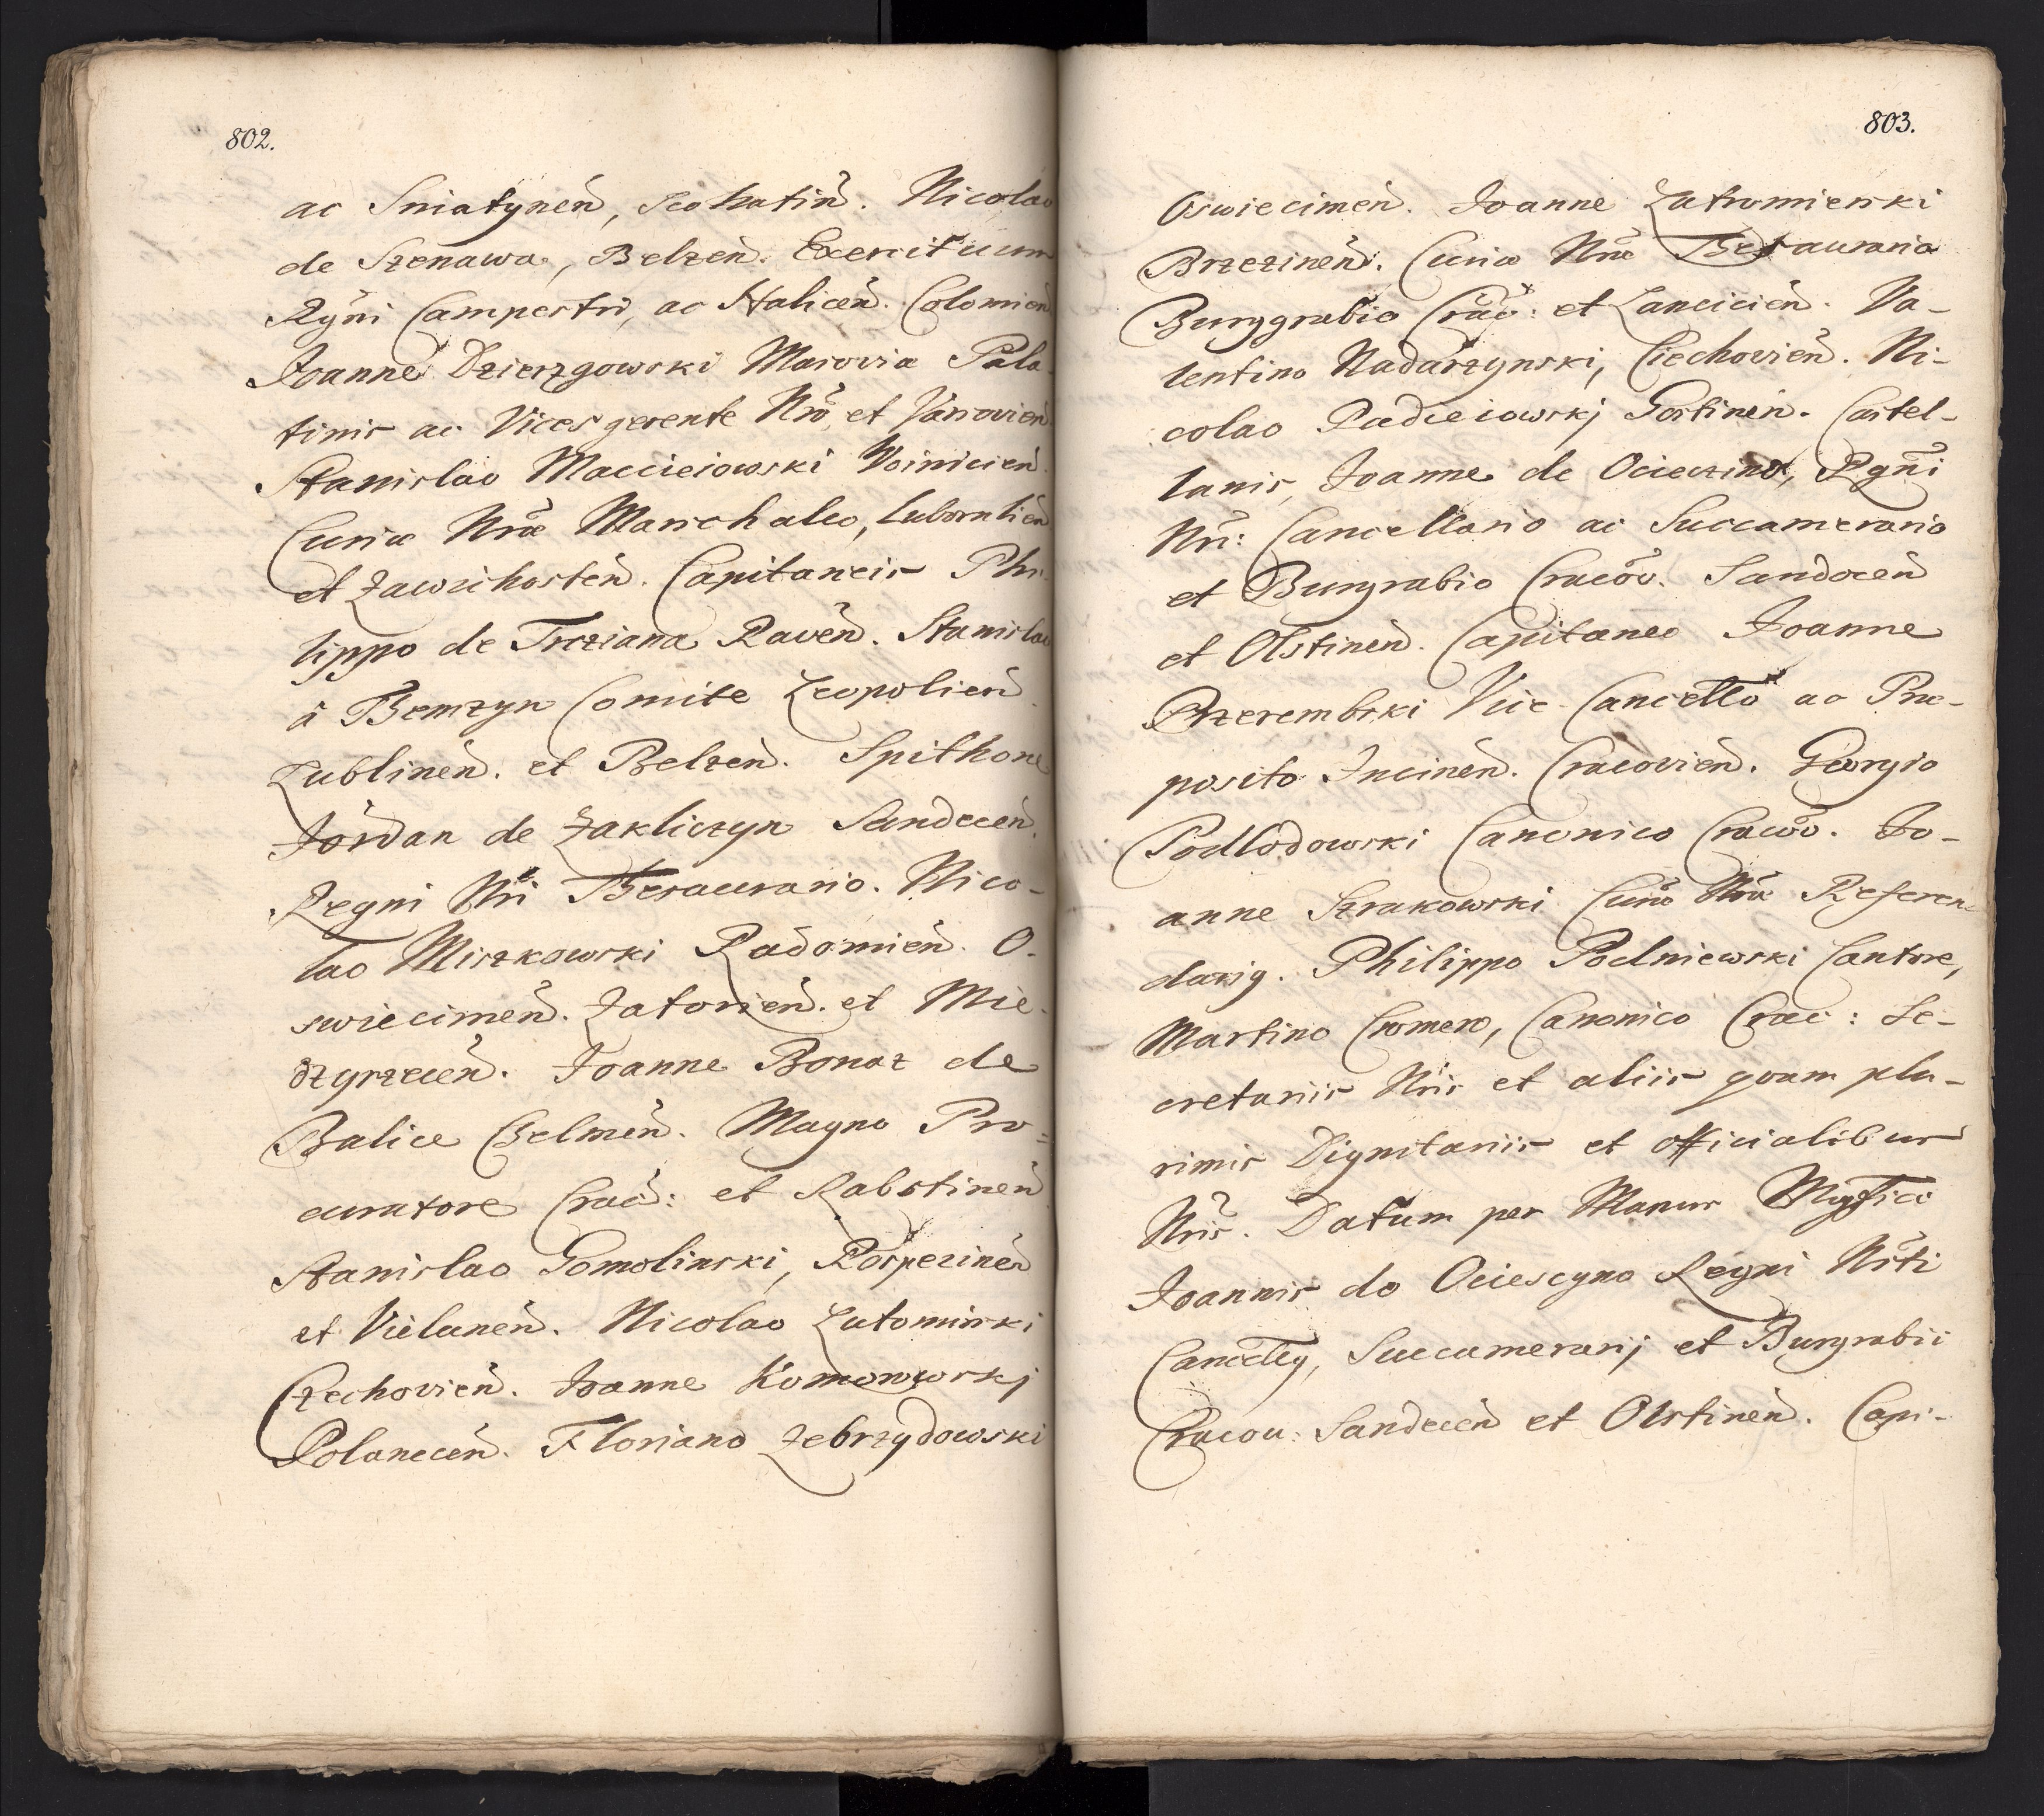 802.
ac Sniatynen̄, Rohatin̄. Nicolao
de Szenawa, Belzen̄. Exercituum
Rgn̄i Campestri, ac Halicen̄. Colomien̄
Joanne Dzierzgowski Masovia Pala-
tinis ac Vices gerente Nr̄o et Varsovien̄
Stanislao Maccieiowski Voinicien̄.
Curiæ Nr̄æ Marschalco, Lubomlien̄
et Zawichosten̄. Capitaneis Phi-
lippo de Trcziana Raven̄. Stanislao
à Themzyn Comite Leopolien̄.
Lublinen̄. et Belzen̄. Spithone
Jordan de Zakliczyn Sandecen̄.
Regni Nr̄i Thesaurario. Nico-
lao Miszkowski Radomien̄. O-
swiecimen̄. Zatorien̄. et Mie-
dzyrzecen̄. Joanne Bonaz de
Balice Chelmen̄. Magno Pro=
curatore Crac̄: et Rabstinen̄
Stanislao Gomolinski, Rospezinen̄
et Vielunen̄. Nicolao Lutomirski
Czechovien̄. Joanne Komorowskj
Polanecen̄. Floriano Zebrzydowski
803.
Oswiecimen̄. Joanne Lutromierski
Brzezinen̄. Curiæ Nr̄æ Thesaurario
Burggrabio Crac̄o: et Lancicien̄. Va-
lentino Nadarzynski, Ciechovien̄. Ni-
colao Padceiowskj Gostinen̄. Castel-
lanis, Joanne de Ocieczino, Rgn̄i
Nr̄i: Cancellario ac Succamerario
et Burgrabio Cracōv. Sandecen̄
et Olstinen̄. Capitaneo Joanne
Przerembski Vice-Cancello ac Præ-
posito Incinen̄. Cracovien̄. Georgio
Podlodowski Canonico Cracōv. Jo-
anne Strakowski Curiæ Nr̄æ Referen-
darig. Philippo Podniewski Cantore,
Martino Cromero, Canonico Crac: Se-
cretariis Nr̄is et aliis quam plu-
rimis Dignitariis et officialibus
Nr̄is. Datum per Manus Mgfici
Joannis do Ociescyno Regni Nr̄ti
Cancelly, Succamerarij et Burgrabii
Cracou: Sandecen̄ et Olstinen̄. Capi-